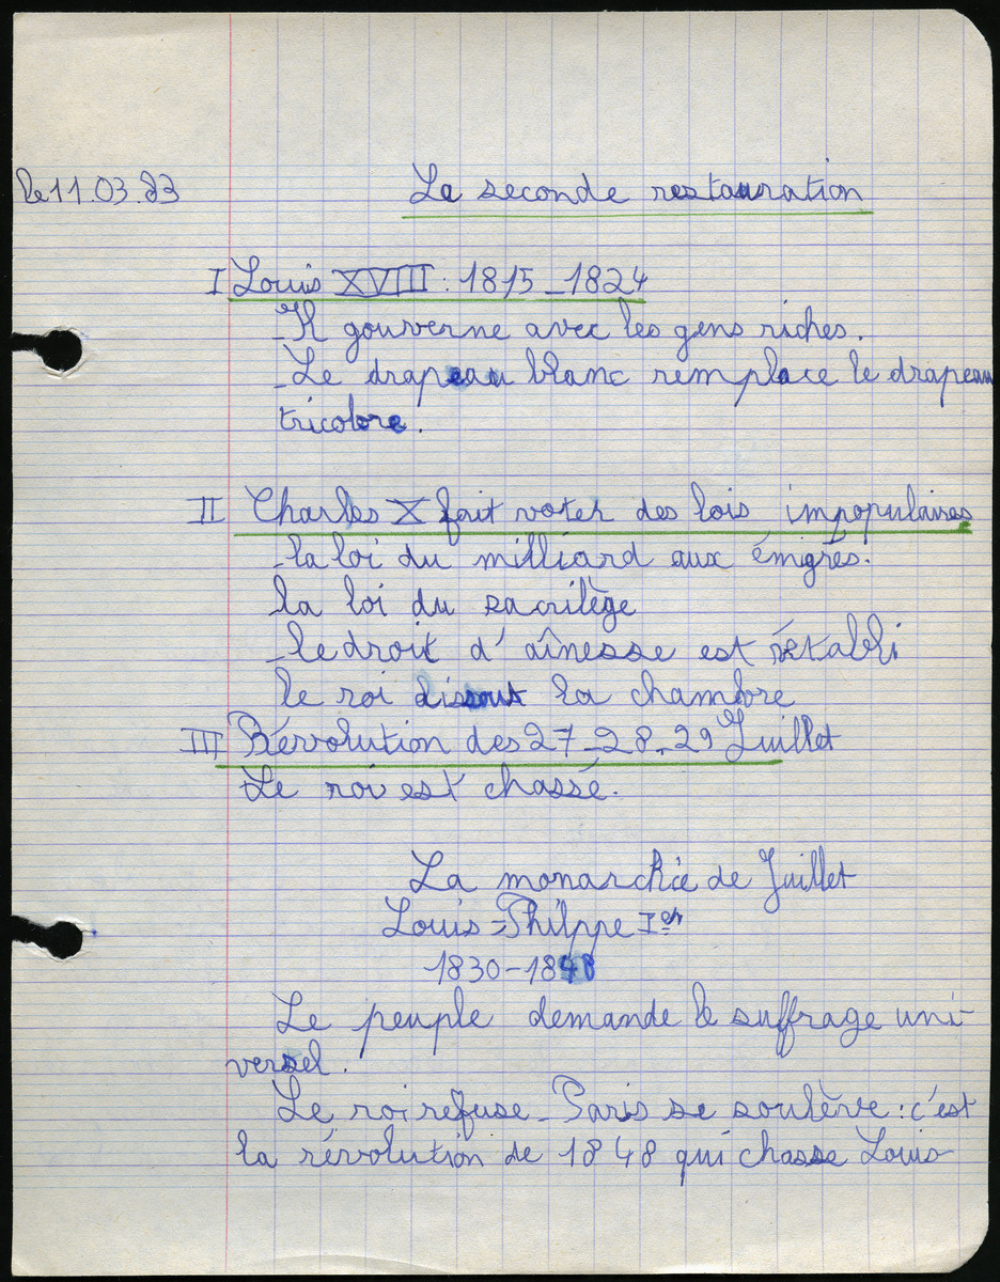 le 11.03.83
La seconde restauration
I Louis XVIII : 1815 - 1824
- Il gouverne avec les gens riches.
- Le drapeau blanc remplace le drapeau
tricolore.
II Charles X fait voter des lois impopulaires
- la loi du milliard aux émigrés.
la loi du sacrilège
- le droit d'aînesse est rétabli
le roi dissout la chambre
III Révolution des 27 - 28 - 29 Juillet
Le roi est chassé.
La monarchie de Juillet
Louis-Philppe Ier
1830 - 1848
Le peuple demande le suffrage uni-
versel.
Le roi refuse - Paris se soulève : c'est
la révolution de 1848 qui chasse Louis-